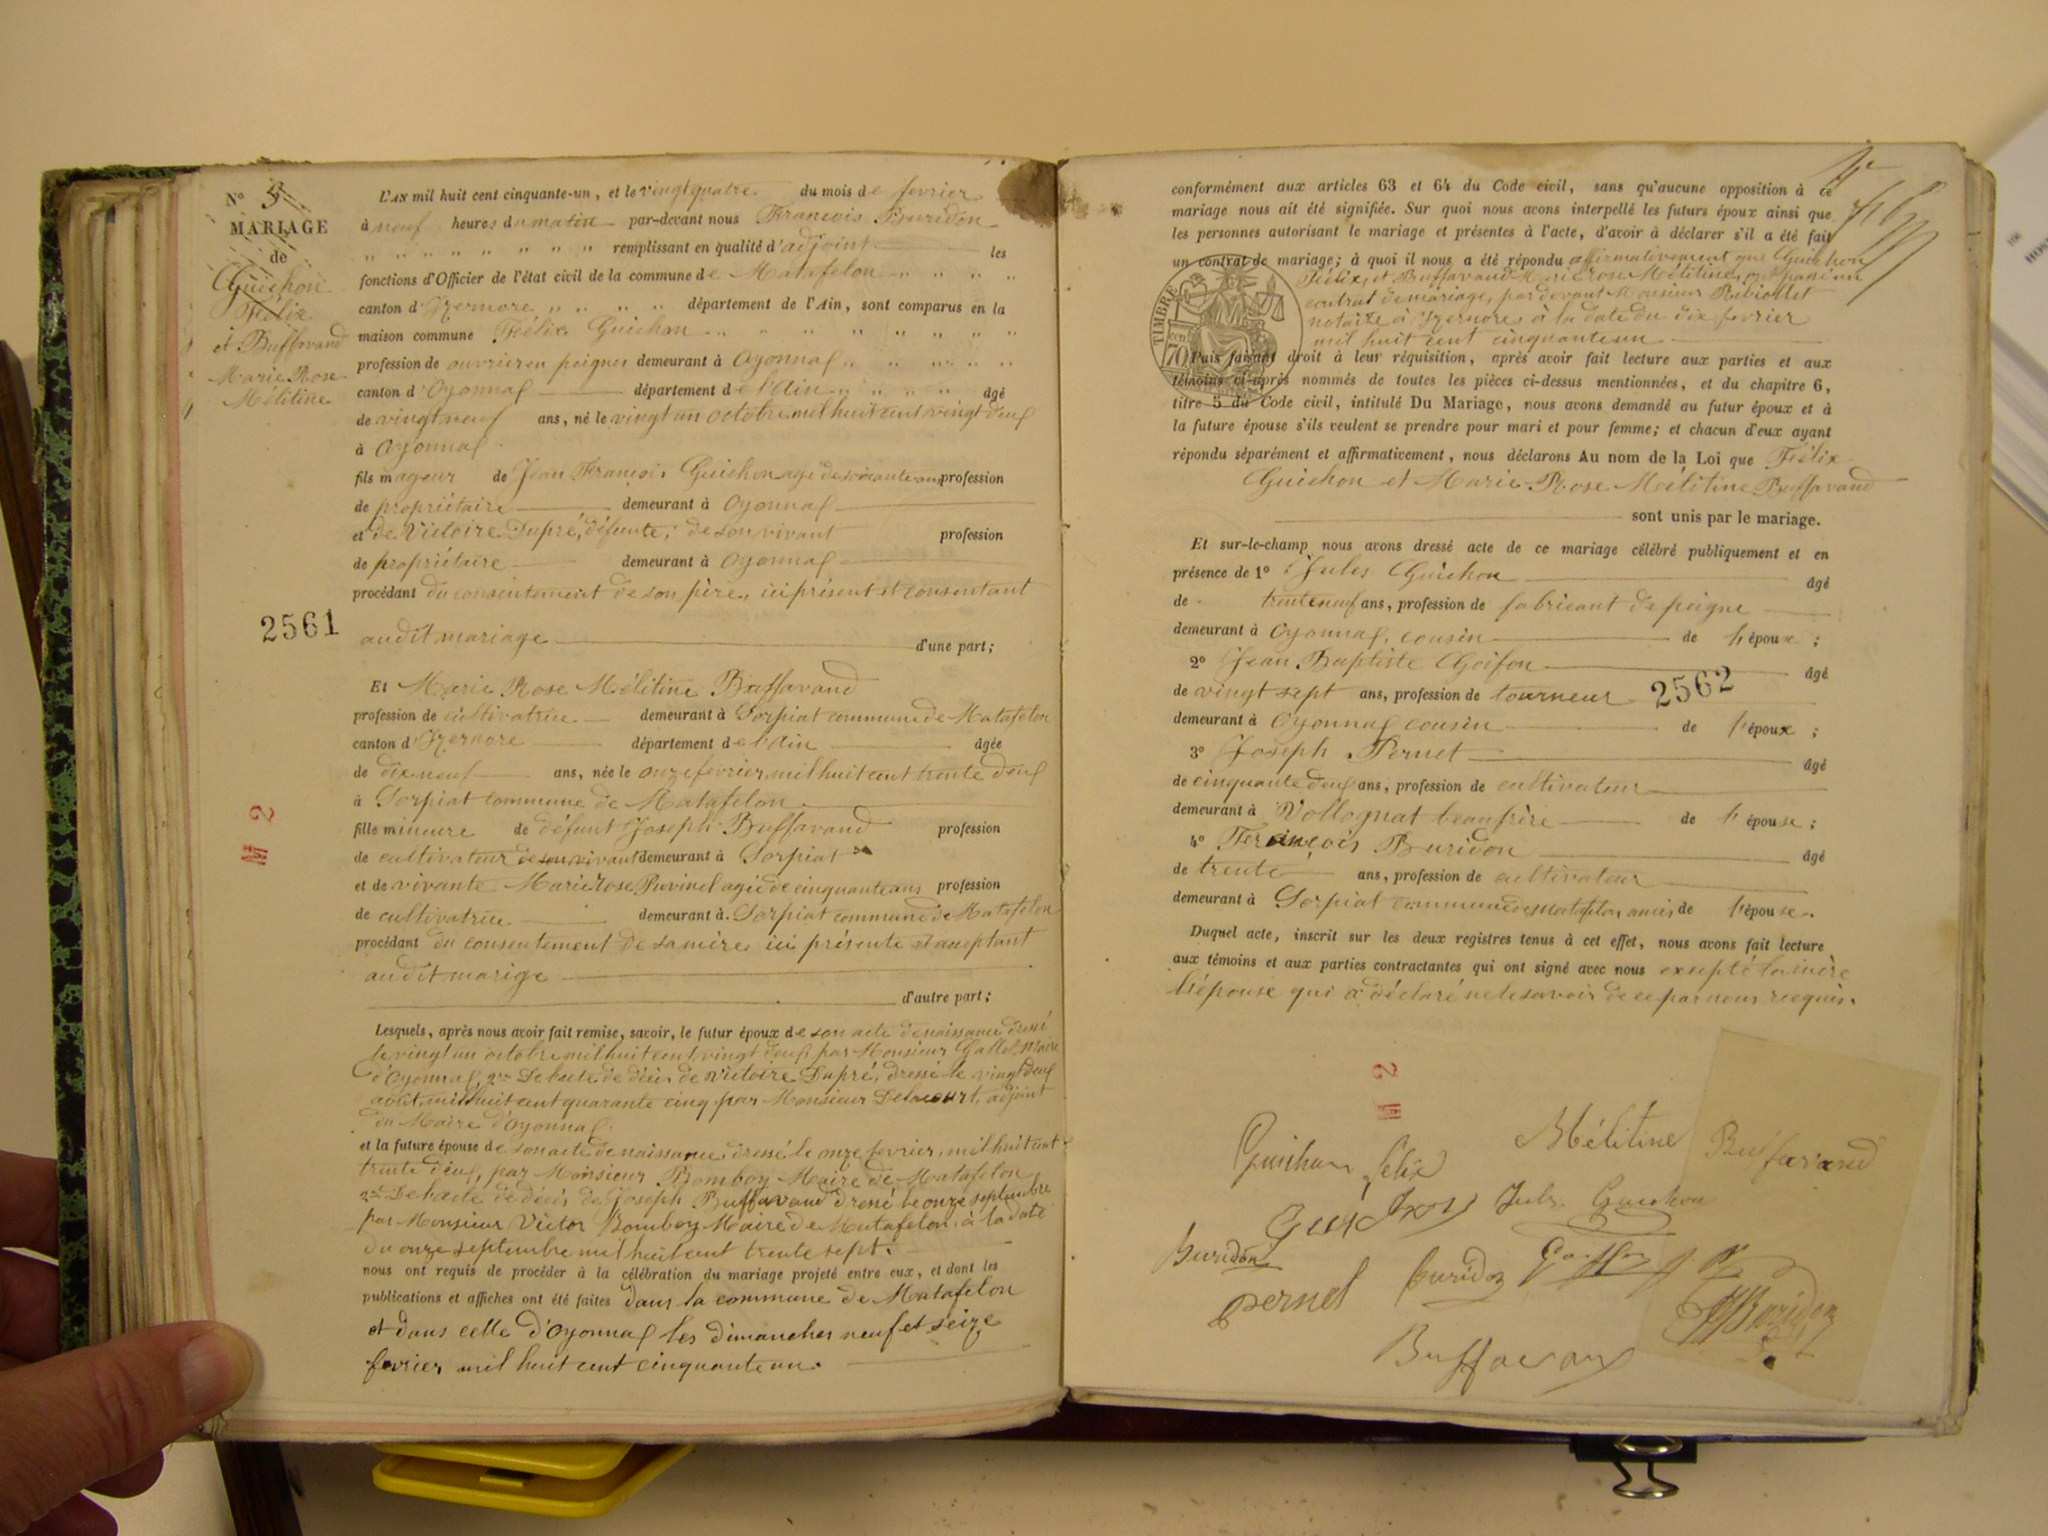 N° 5
MARIAGE
de
Guichon
Félix
et Buffavand
Marie Rose
Mélitine
L'AN mil huit cent cinquante-un, et le vingt quatre du mois de fevrier
à neuf heures du matin par-devant nous François Buridon
" " " " " " " remplissant en qualité d'adjoint les
fonctions d'Officier de l'état civil de la commune de Matafelon " " " "
canton d'Izernore " " " " département de l'Ain, sont comparus en la
maison commune Félix Guichon " " " " " " " "
profession de ouvrier en peignes demeurant à Oyonnaf " " " " "
canton d'Oyonnaf département de l'Ain " " " " âgé
de vingt neuf ans, né le vingt un octobre mil huit cent vingt deuf
à Oyonnaf
fils mageur de Jean François Guichon agé de soixante ans profession
de propriétaire demeurant à Oyonnaf
et de Victoire Dupré, défunte, de son vivant profession
de propriétaire demeurant à Oyonnaf
procédant du consentement de son père, ici présent et consentant
audit mariage d'une part;
2561
Et Marie Rose Mélitine Buffavand
profession de cultivatrice demeurant à Sorpiat commune de Matafelon
canton d'Izernore département de l'Ain âgée
de dix neuf ans, née le onze fevrier mil huit cent trente deuf
à Sorpiat commune de Matafelon
fille mineure de défunt Joseph Buffavand profession
de cultivateur de son vivant demeurant à Sorpiat
et de vivante Marie rose Puvinel agée de cinquante ans profession
de cultivatrice demeurant à Sorpiat commune de Matafelon
procédant du consentement de sa mère, ici présente et acceptant
audit marige
d'autre part;
M 2
Lesquels, après nous avoir fait remise, savoir, le futur époux de son acte de naissance dressé
le vingt un octobre mil huit cent vingt deuf par Monsieur Maire
d'Oyonnaf, De l'acte de décès de Victoire Dupré, dressé le vingt deuf
août mil huit cent quarante cinq par Monsieur Delacourt, adjoint
du Maire d'Oyonnaf.
et la future épouse de son acte de naissance, dressé le onze fevrier mil huit cent
trente deuf, par Monsieur Bomboy Maire de Matafelon
De l'acte de décès de Joseph Buffavand dressé le onze septembre
par Monsieur Victor Bomboy Maire de Matafelon, à la date
du onze septembre mil huit cent trente sept.
nous ont requis de procéder à la célébration du mariage projeté entre eux, et dont les
publications et affiches ont été faites dans la commune de Matafelon
et dans celle d'Oyonnaf les dimanches neuf et seize
fevrier mil huit cent cinquante un.
conformément aux articles 63 et 64 du Code civil, sans qu'aucune opposition à ce
mariage nous ait été signifiée. Sur quoi nous avons interpellé les futurs époux ainsi que
les personnes autorisant le mariage et présentes à l'acte, d'avoir à déclarer s'il a été fait
un contrat de mariage; à quoi il nous a été répondu affirmativement que Guichon
Félix, et Buffavand Marie rose Mélitine, ont passé un
contrat de mariage, par devant Monsieur notaire à Izernore à la date du dix fevrier
mil huit cent cinquante un
TIMBRE
70
Puis faisant droit à leur réquisition, après avoir fait lecture aux parties et aux
témoins ci-après nommés de toutes les pièces ci-dessus mentionnées, et du chapitre 6,
titre 5 du Code civil, intitulé Du Mariage, nous avons demandé au futur époux et à
la future épouse s'ils veulent se prendre pour mari et pour femme; et chacun d'eux ayant
répondu séparément et affirmativement, nous déclarons Au nom de la Loi que Félix
Guichon et Marie-Rose Mélitine Buffavand
sont unis par le mariage.
Et sur-le-champ nous avons dressé acte de ce mariage célébré publiquement et en
présence de 1° Jules Guichon âgé
de trente neuf ans, profession de fabricant de peigne
demeurant à Oyonnaf, cousin de l'époux;
2° Jean Baptiste Goifon âgé
de vingt sept ans, profession de tourneur 2562
demeurant à Oyonnaf cousin de l'époux;
3° Joseph Pernet âgé
de cinquante deuf ans, profession de cultivateur
demeurant à Vollognat beaufrère de l'épouse;
4° François Buridon âgé
de trente ans, profession de cultivateur
demeurant à Sorpiat commune de Matafelon amis de l'épouse.
Duquel acte, inscrit sur les deux registres tenus à cet effet, nous avons fait lecture
aux témoins et aux parties contractantes qui ont signé avec nous exsepté la mère
l'épouse qui a déclaré ne le savoir de ce par nous requis.
M 2
Guichon félix Mélitine Buffavand
Jules Guichon
buridon
pernet buridon
Buridon
Buffavan